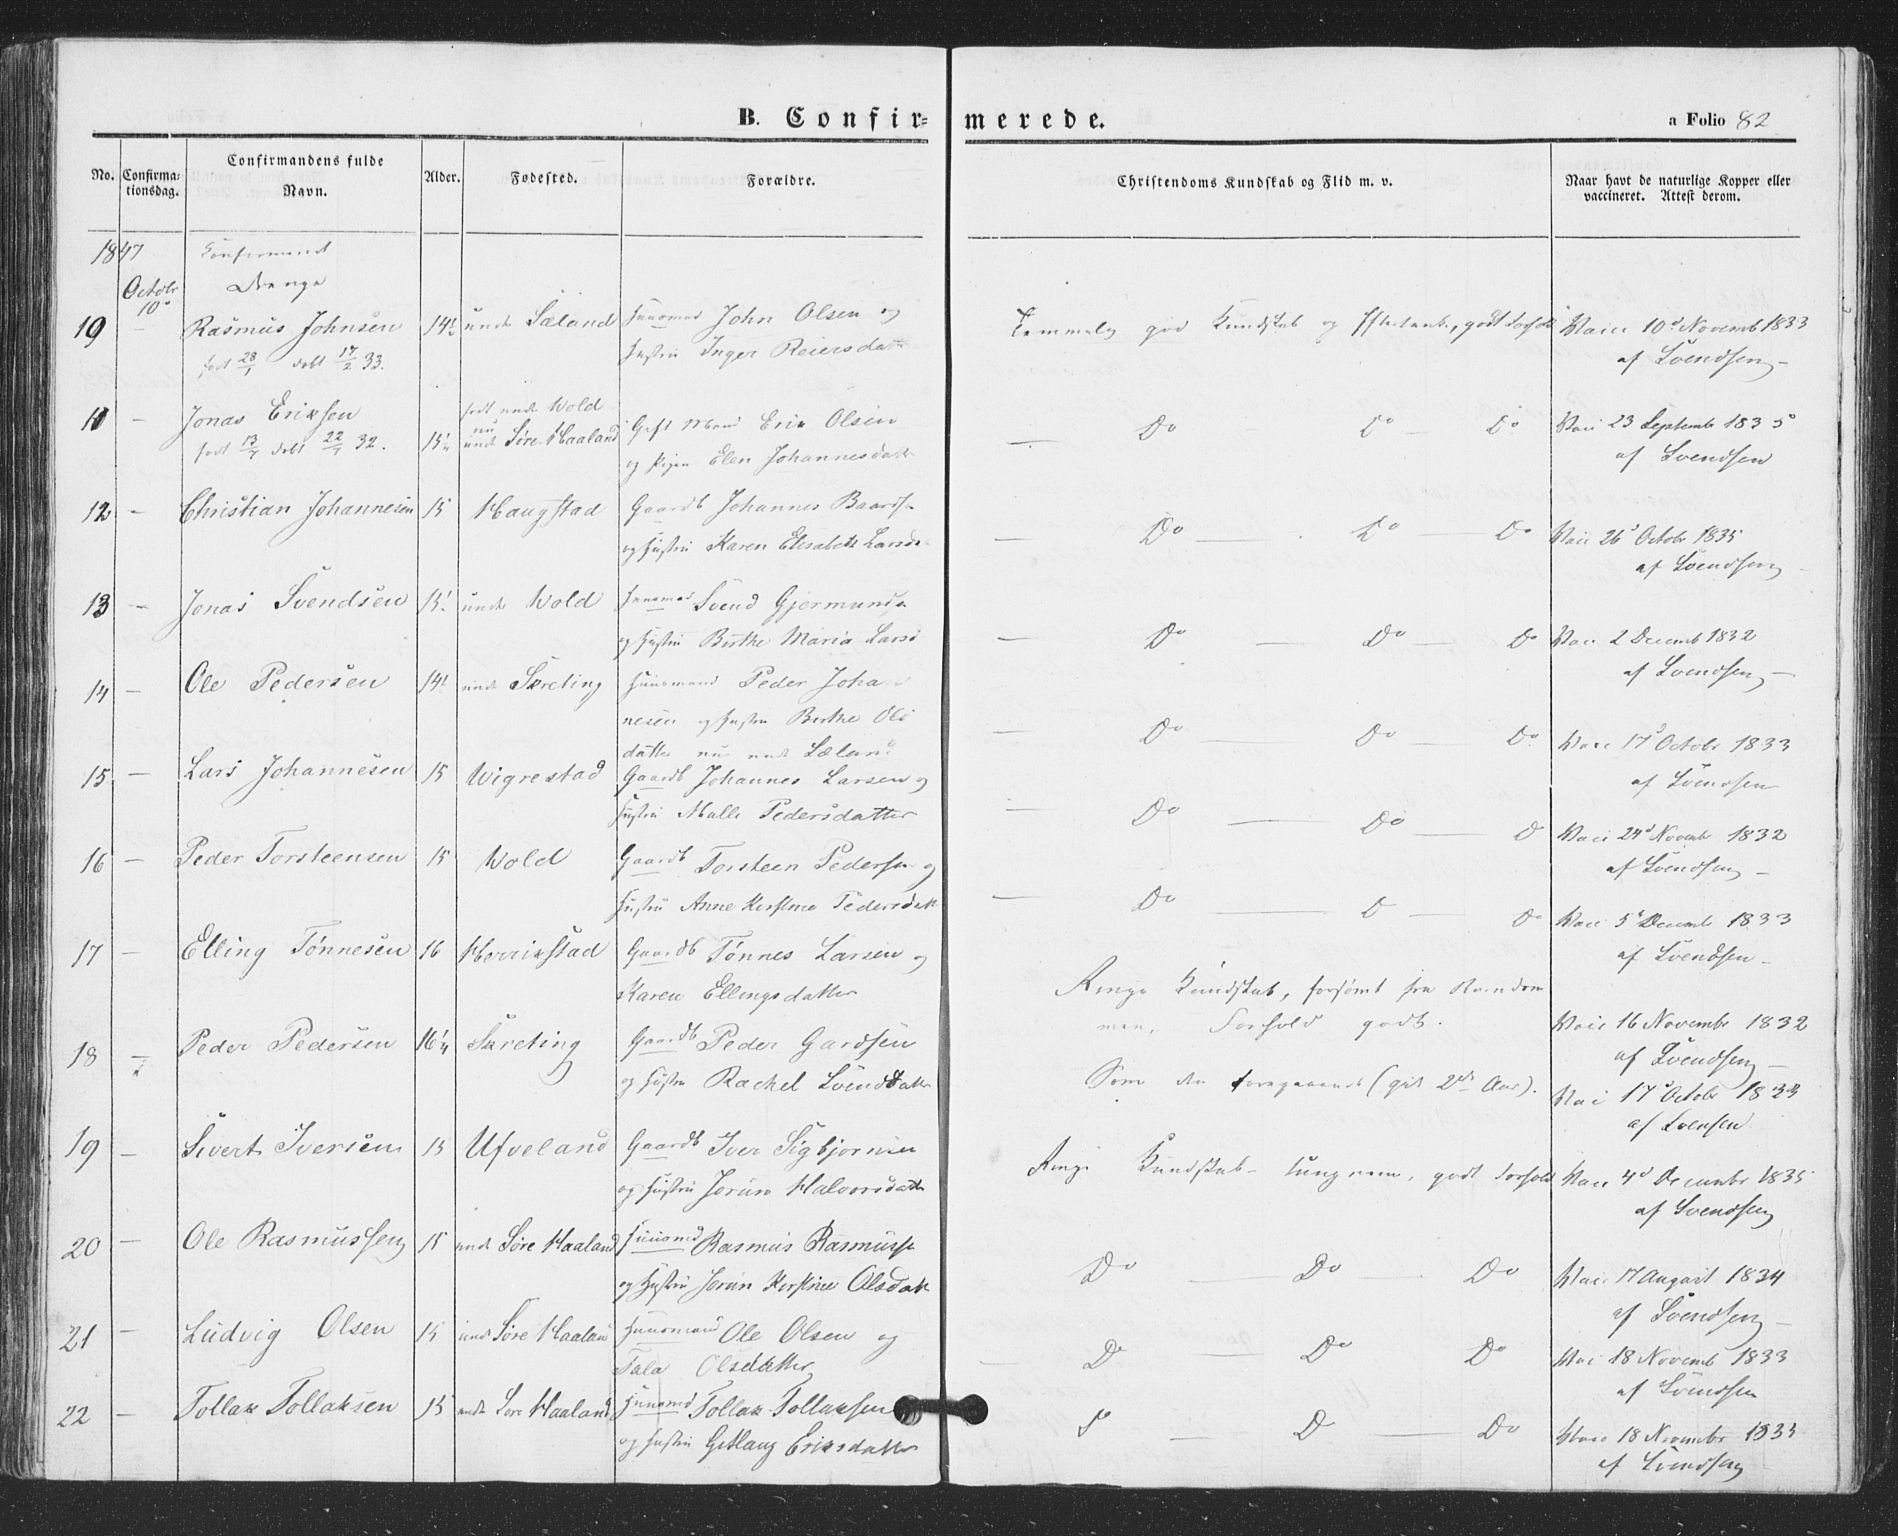 B. Confir=
merede.
a Folio 82
No.
Confirma=
tionsdag.
Confirmandens fulde
Navn.
Alder.
Fødested.
Forældre.
Christendoms Kundskab og Flid m. v.
Naar havt de naturlige Kopper eller
vaccineret. Attest derom.
1847
Octobr
10d
Drenge
10 — Rasmus Johnsen 14½ under Sæland Huusmd John Olsen og
født 28/1 døbt 17/2 33. Hustru Inger Reiersdatt
Temmelig god Kundskab og Eftertanke, godt Forhold
Vacc 10d Novemb 1833
af Svendsen
11 — Jonas Eriksen 15½ født und Wold Gift Mand Erik Olsen
født 13/4 døbt 22/4 32. nu und Søre Haaland og Pigen Elen Johannesdatt
— Do Do — Do
Vacc 23 Septembr 1835
af Svendsen
12 — Christian Johannesen 15 Haugstad Gaardb Johannes Baards
og Hustru Karen Elisabeth Larsd
— Do — Do — Do
Vacc 26d Octobr 1835
af Svendsen
13 — Jonas Svendsen 15½ under Wold Huusmd Svend Gjermunds
og Hustru Birthe Maria Larsd
— Do — Do — Do
Vacc 2 Decemb 1832
af Svendsen
14 — Ole Pedersen 14½ under Skreting Huusmand Peder Johan
nesen og Hustru Birthe Ols
datter nu und Sæland
— Do — Do — Do
Vacc 17d Octobr 1833
af Svendsen
15 — Lars Johannesen 15 Wigrestad Gaardb Johannes Larsen og
Hustru Malle Pedersdatter
— Do — Do — D
Vacc 24d Novemb 1832
af Svendsen
16 — Peder Torsteensen 15 Wold Gaardb Torsteen Peders og
Hustru Anne Kirstine Pedersdatt
— Do — D — Do
Vacc 5d Decemb 1833
af Svendsen
17 — Elling Tönnesen 16 Herrikstad Gaardb Tönnes Larsen og
Karen Ellingsdatter
Ringe Kundskab, forsømt fra Barndom
men, Forhold godt.
Vacc 16 Novembr 1832
af Svendsen
18 — Peder Pedersen 16¼ Skreting Gaardb Peder Gardsen
og Hustru Rachel Svendsdatter
Som den foregaaende (gik 2de Aar).
Vacc 17d Octobr 1833
af Svensen
19 — Sivert Iversen 15 Ufveland Gaardb Iver Sigbjørnsen
og Hustru Jorun Halvorsdatt
Ringe Kundskab — tungnem, godt Forhold
Vacc 4d Decembr 1835
af Svendsen
20 — Ole Rasmussen 15 under Søre Haaland Huusmd Rasmus Rasmuss
og Hustru Jorun Kirstine Olsdatt
Do — Do Do
Vacc 17 August 1834
af Svendsen
21 — Ludvig Olsen 15 und Søre Haaland Huusmand Ole Olsen og
Tala Olsdatter
— D — Do Do
Vacc 18 Novemb 1833
af Svendsen
22 — Tollak Tollaksen 15 under Søre Haaland Huusmd Tollak Tollaksen
og Hustru Gitlaug Eriksdatter
D — D — Do
Vacc 18 Novembr 1833
af Svendsen